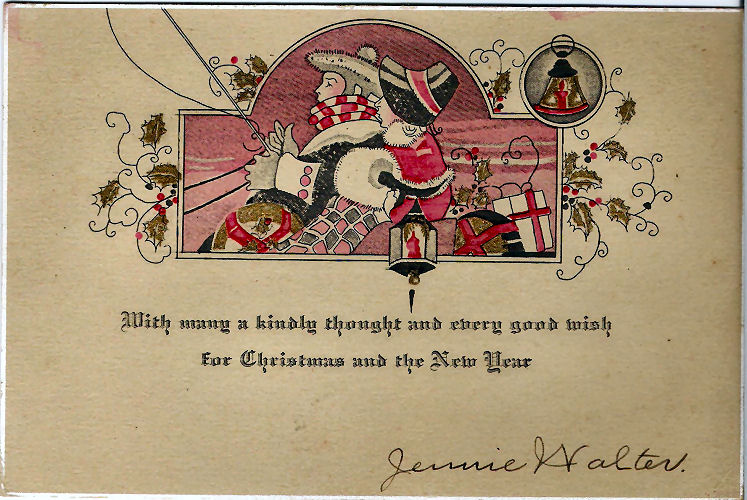 With many a kindly thought and every good wish
for Christmas and the New Year
Jennie Walter.